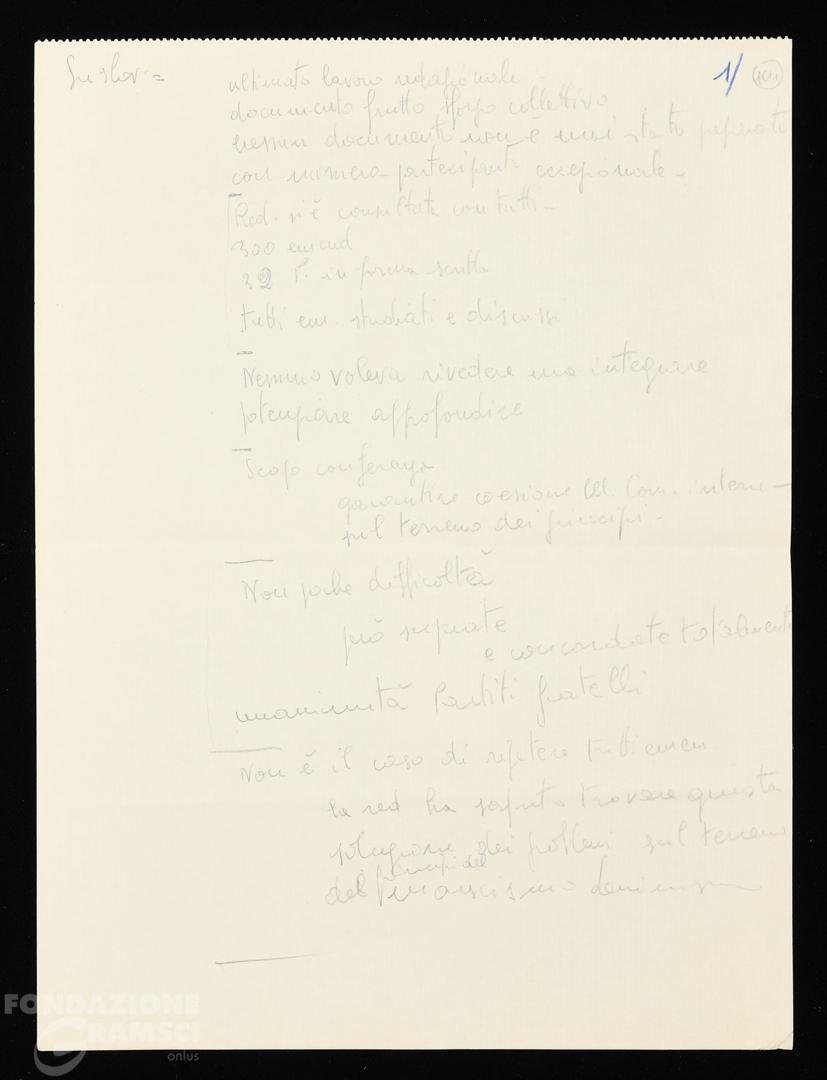 Suslov =
1/
ultimato lavoro redazionale -
documento frutto sforzo collettivo
nessun documento non è mai stato preparato
con numero partecipanti eccezionale -
Red. si è consultata con tutti -
300 emend
32 P. in forma scritta
tutti em. studiati e discussi
Nessuno voleva rivedere ma integrare
potenziare approfondire
Scopo conferenza
garantire coesione M. Com. intern -
sul terreno dei principi -
Non poche difficoltà
può
e concordate totalmente
unanimità Partiti fratelli
Non è il caso di ripetere tutti emen
la red ha saputo trovare questa
soluzione dei sul terreno
dei principi del
marxismo leninismo
FONDAZIONE
GRAMSCI
onlus